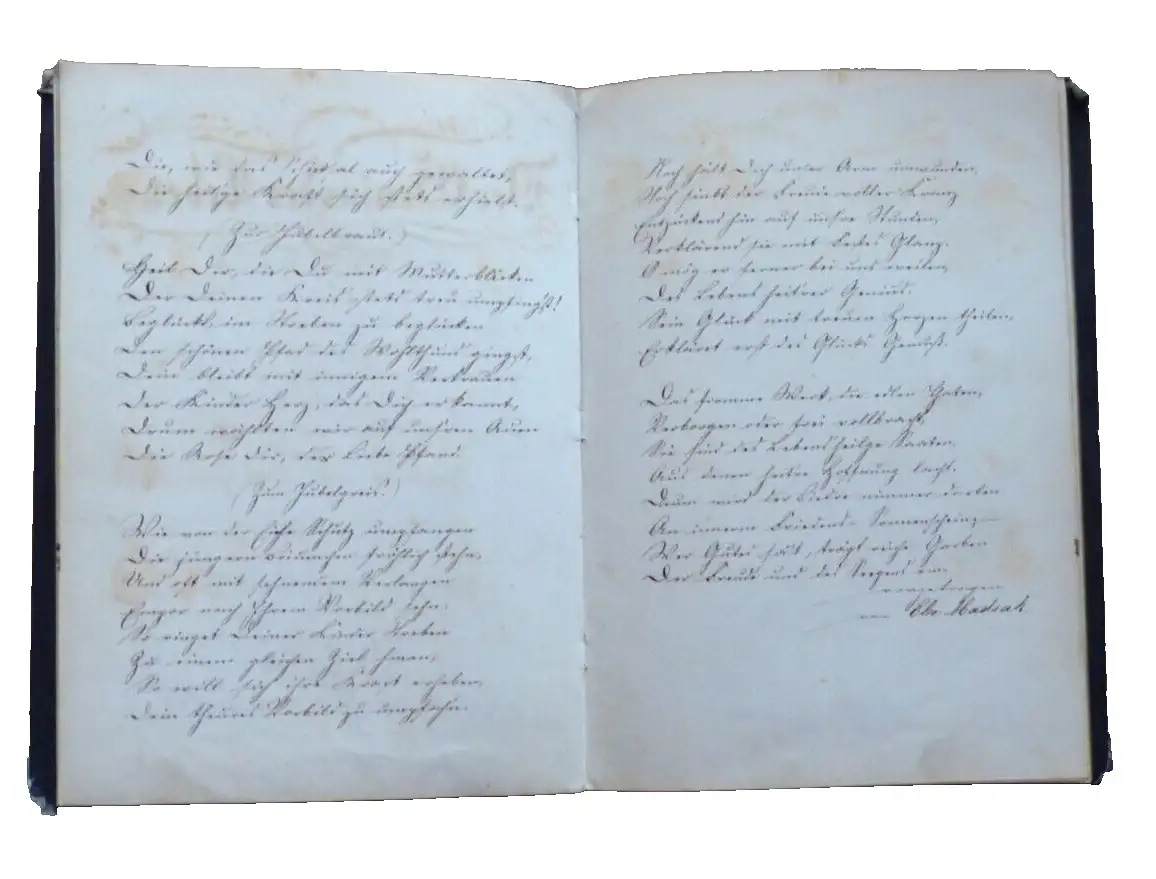 Die, wie das Schicksal auch gewaltet,
Die heilige Kraft sich stets erhielt.
(Zur Jubelbraut.)
Heil Dir, die Du mit Mutterblicken
Der Deinen Kreis stets treu umpfingst!
Beglückt, im Streben zu beglücken
Den schönen Pfad des Wohlthuns gingst,
Dein bleibt mit innigem Vertrauen
Der Kinder Herz, das Dich erkannt,
Drum wählten wir auf unsren Auen
Die Rose Dir, der Liebe Pfand.
(Zum Jubelgreis.)
Wie von der Eiche Schutz umpfangen
Die jüngern Bäumchen fröhlich stehn,
Und oft mit sehnendem Verlangen
Empor nach Ihrem Vorbild sehn.
So ringet Deiner Kinder Streben
Zu einem gleichen Ziel hinan,
So will sich ihre Kraft erheben,
Dein theures Vorbild zu umpfahn.
Noch hält Dich unser Arm umwunden,
Noch sinkt der Freude voller Kranz
Entzückend hin auf unsre Stunden,
Verklärend sie mit Glanz.
O mög er ferner bei uns weilen,
Des Lebens heitrer Genius.
Sein Glück mit treuen Herzen theilen,
Erkläret erst des Glücks Genuß.
Das fromme Werk, die edlen Thaten,
Verborgen oder frei vollbracht,
Sie sind des Lebens heilge Saaten,
Aus denen heitre Hoffnung lacht.
Drum wird der Biedre nimmer darben
An innerm Friedens-Sonnenschein;
Wer Gutes sä't, trägt reiche Garben
Der Freude und des Segens ein.
vorgetragen
von Madsak